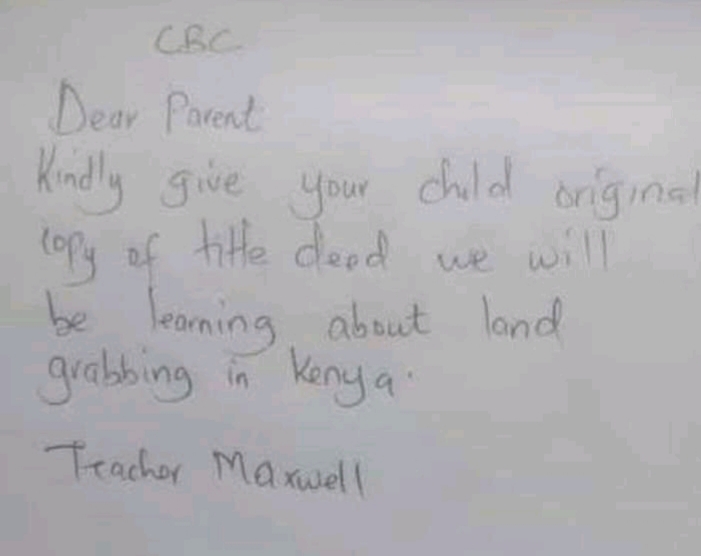 CBC
Dear Parent
Kindly give your child original
copy of title deed we will
be learning about land
grabbing in Kenya.
Teacher Maxwell